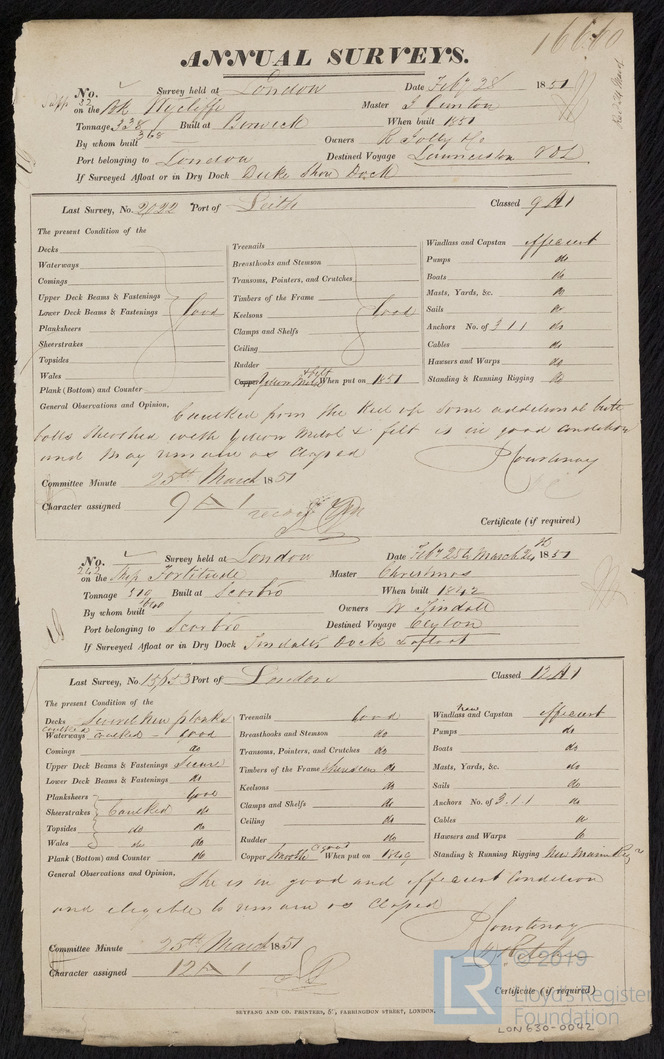 16660
ANNUAL SURVEYS.
No. 22 Survey held at London Date Feby 28 1851
on the Bk Wycliffe Master J Clinton
Tonnage 338 / 368 Built at Berwick When built 1851
By whom built Owners R Jolly &c
Port belonging to London Destined Voyage Launceston VDL
If Surveyed Afloat or in Dry Dock Duke Shore Dock
Last Survey, No. 2022 Port of Leith Classed 9 A 1
The present Condition of the
Decks
Waterways
Comings
Upper Deck Beams & Fastenings
Lower Deck Beams & Fastenings Good
Planksheers
Sheerstrakes
Topsides
Wales
Plank (Bottom) and Counter
Treenails
Breasthooks and Stemson
Transoms, Pointers, and Crutches
Timbers of the Frame
Keelsons Good
Clamps and Shelfs
Ceiling
Rudder
Copper Yellow Metal & felt When put on 1851
Windlass and Capstan efficient
Pumps do
Boats do
Masts, Yards, &c. do
Sails do
Anchors No. of 3 1 1 do
Cables do
Hawsers and Warps do
Standing & Running Rigging do
General Observations and Opinion, Caulked from the Keel up some additional butt
bolts sheathed with Yellow Metal & felt is in good condition
and may remain as Classed
Courtenay
Committee Minute 25th March 1851
Character assigned 9 A 1
Certificate (if required)
No. 242 Survey held at London Date Feby 25th March 24th 1851
on the Ship Fortitude Master Christmas
Tonnage 310 Built at Scarbro When built 1842
By whom built Owners W Tindall
Port belonging to Scarbro Destined Voyage Ceylon
If Surveyed Afloat or in Dry Dock Tindalls Dock & afloat
Last Survey, No. 15553 Port of London Classed 12 A 1
The present Condition of the
Decks Several New planks
caulked
Waterways caulked - Good
Comings do
Upper Deck Beams & Fastenings Secure
Lower Deck Beams & Fastenings do
Planksheers Good
Sheerstrakes Caulked do
Topsides do do
Wales do do
Plank (Bottom) and Counter do
Treenails Good
Breasthooks and Stemson do
Transoms, Pointers, and Crutches do
Timbers of the Frame do
Keelsons do
Clamps and Shelfs do
Ceiling do
Rudder do
Copper Good When put on 1849
New
Windlass and Capstan efficient
Pumps do
Boats do
Masts, Yards, &c. do
Sails do
Anchors No. of 3.1.1 do
Cables do
Hawsers and Warps do
Standing & Running Rigging New Main Rigg
General Observations and Opinion, She is in good and efficient Condition
and eligible to remain as Classed
Courtenay
Committee Minute 25th March 1851
Character assigned 12 A 1
Certificate (if required)
SEYFANG AND CO. PRINTERS, 57, FARRINGDON STREET, LONDON.
LR © 2019
Lloyd's Register
Foundation
LON630-0042